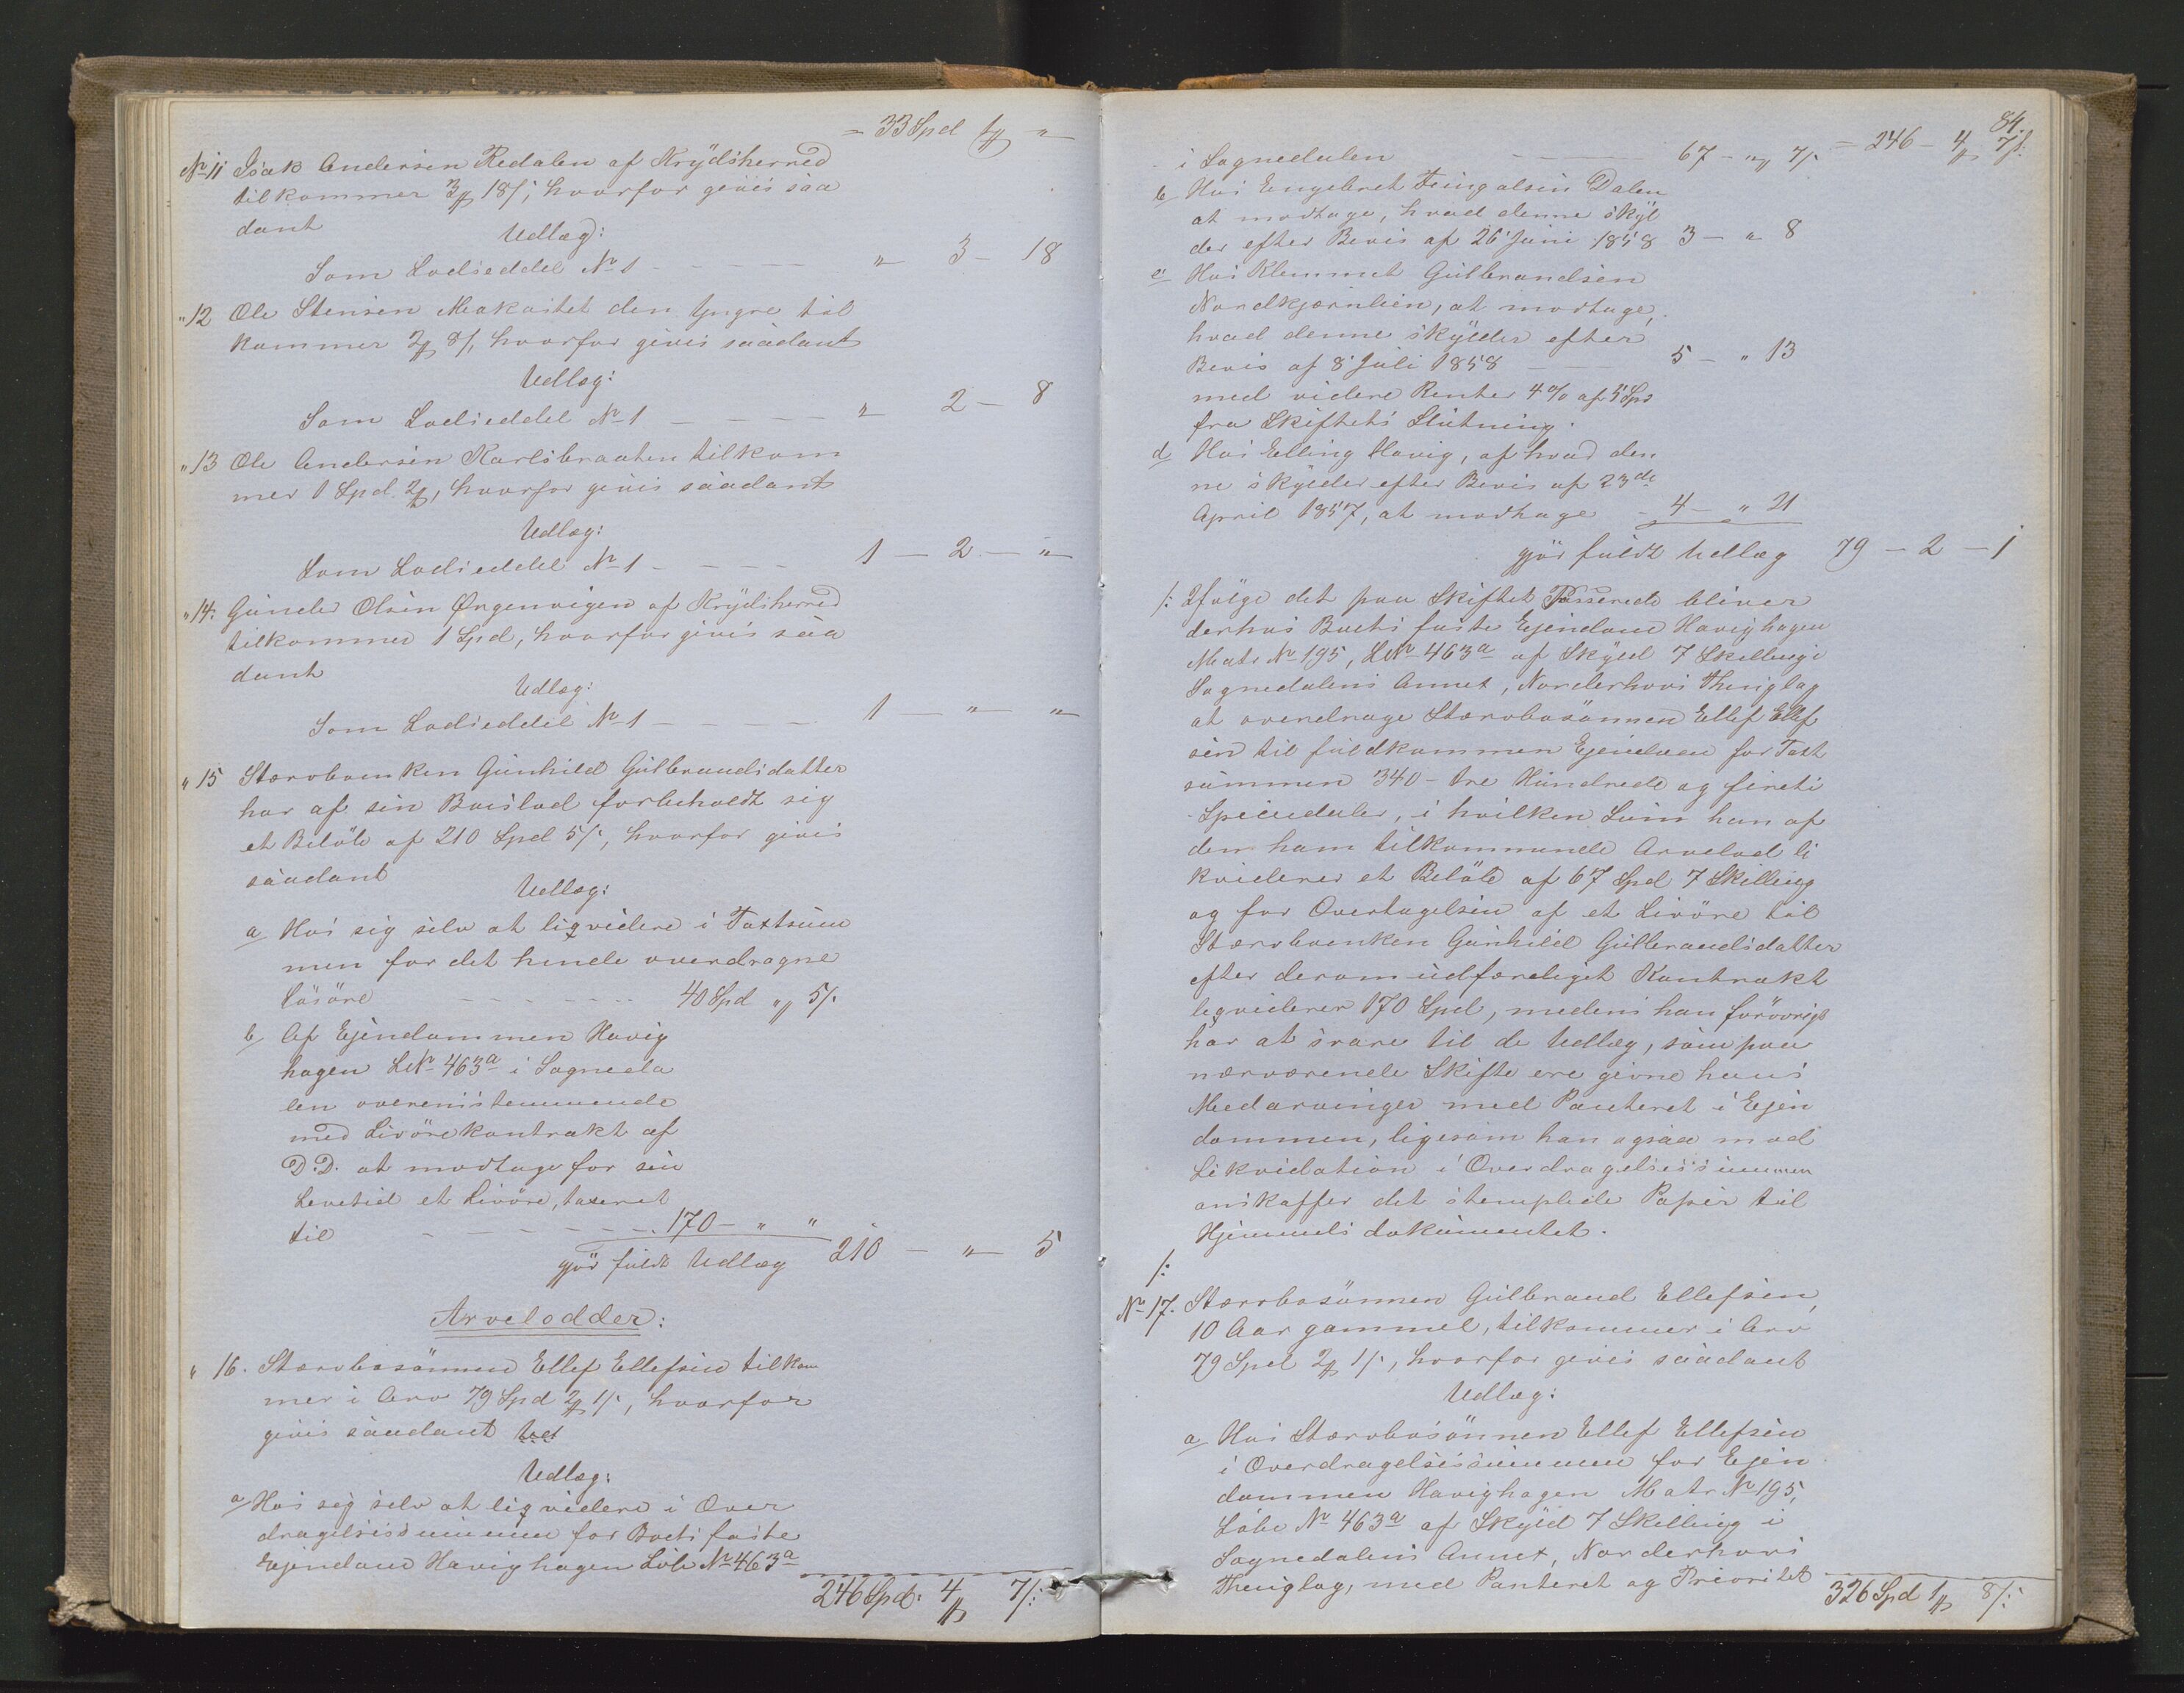 = 33 Spd 1 ß "
No 11 Isak Andersen Redalen af Krydsherred
tilkommer 3 ß 18 /:, hvorfor gives saa
dant
Udlæg:
Som Lodseddel No 1 - - - - " 3 - 18
" 12 Ole Stensen Mokastet den Yngre til
kommer 2 ß 8 /:, hvorfor gives saadant
Udlæg:
Som Lodseddel No 1 - - - - " 2 - 8
" 13 Ole Andersen Karlsbraaten tilkom
mer 1 Spd. 2 ß, hvorfor gives saadant
Udlæg:
Som Lodseddel No 1 - - - - 1 - 2 - "
" 14. Gunder Olsen Ørgenvigen af Krydsherred
tilkommer 1 Spd, hvorfor gives saa
dant
Udlæg:
Som Lodseddel No 1 - - - - 1 - " - "
" 15 Stervboenken Gunhild Gulbrandsdatter
har af sin Boeslod forbeholdt sig
et Beløb af 210 Spd 5 /:, hvorfor gives
saadant
Udlæg:
a Hos sig selv at liqvidere i Taxtsum
men for det hende overdragne
Løsøre - - - - 40 Spd " ß 5 /:
b Af Ejendommen Havig
hagen LNo 463a i Sogneda
len overensstemmende
med Livørekontrakt af
D.D. at modtage for sin
Levetid et Livøre, taxeret
til - - - - 170 - " "
gjør fuldt Udlæg 210 - " - 5
Arvelodder:
" 16. Stervbosønnen Ellef Ellefsen tilkom
mer i Arv 79 Spd 2 ß 1 /:, hvorfor
gives saadant
Udlæg:
a Hos sig selv at liqvidere i Over
dragelsessummen for Boets faste
Ejendom Havighagen Løbe No 463a
246 Spd: 4 ß 7 /:
84.
i Sognedalen - - - 67 - " ß 7 /: = 246 - 4 ß 7 /:
b Hos Engebret Dalen
at modtage, hvad denne skyl
der efter Bevis af 26 Juni 1858 3 - " 8
c Hos Klemmet Gulbrandsen
Nordkjernlien, at modtage,
hvad denne skylder efter
Bevis af 8 Juli 1858 - - - 5 - " 13
med videre Renter 4 % af 5 Spd
fra Skiftets Slutning.
d Hos Elling Havig, af hvad den
ne skylder efter Bevis af 23de
April 1857, at modtage - 4 - " 21
gjør fuldt Udlæg 79 - 2 - 1
/: Ifølge det paa Skiftet Passerede bliver
derhos Boets faste Ejendom Havighagen
Matr No 195, LNo 463a af Skyld 7 Skilling i
Sognedalens Annex, Norderhovs Thinglag
at overdrage Stervbosønnen Ellef Ellef
sen til fuldkommen Ejendom for Taxt
summen 340 - tre Hundrede og fireti
Speciedaler, i hvilken Sum han af
den ham tilkommende Arvelod li
kviderer et Beløb af 67 Spd 7 Skilling
og for Overtagelsen af et Livøre til
Stervboenken Gunhild Gulbrandsdatter
efter derom udfærdiget Kontrakt
liqviderer 170 Spd, medens han forøvrigt
har at svare til de Udlæg, som paa
nærværende Skifte ere givne hans
Medarvinger med Panteret i Ejen
dommen, ligesom han ogsaa mod
Likvidation i Overdragelsessummen
anskaffer det stemplede Papir til
Hjemmelsdokumentet.
/:
No 17. Stervbosønnen Gulbrand Ellefsen,
10 Aar gammel, tilkommer i Arv
79 Spd 2 ß 1 /:, hvorfor gives saadant
Udlæg:
a Hos Stervbosønnen Ellef Ellefsen
i Overdragelsessummen for Ejen
dommen Havighagen Matr No 195,
Løbe No 463a af Skyld 7 Skilling i
Sognedalens Annex, Norderhovs
Thinglag, med Panteret og Prioritet
326 Spd 1 ß 8 /: